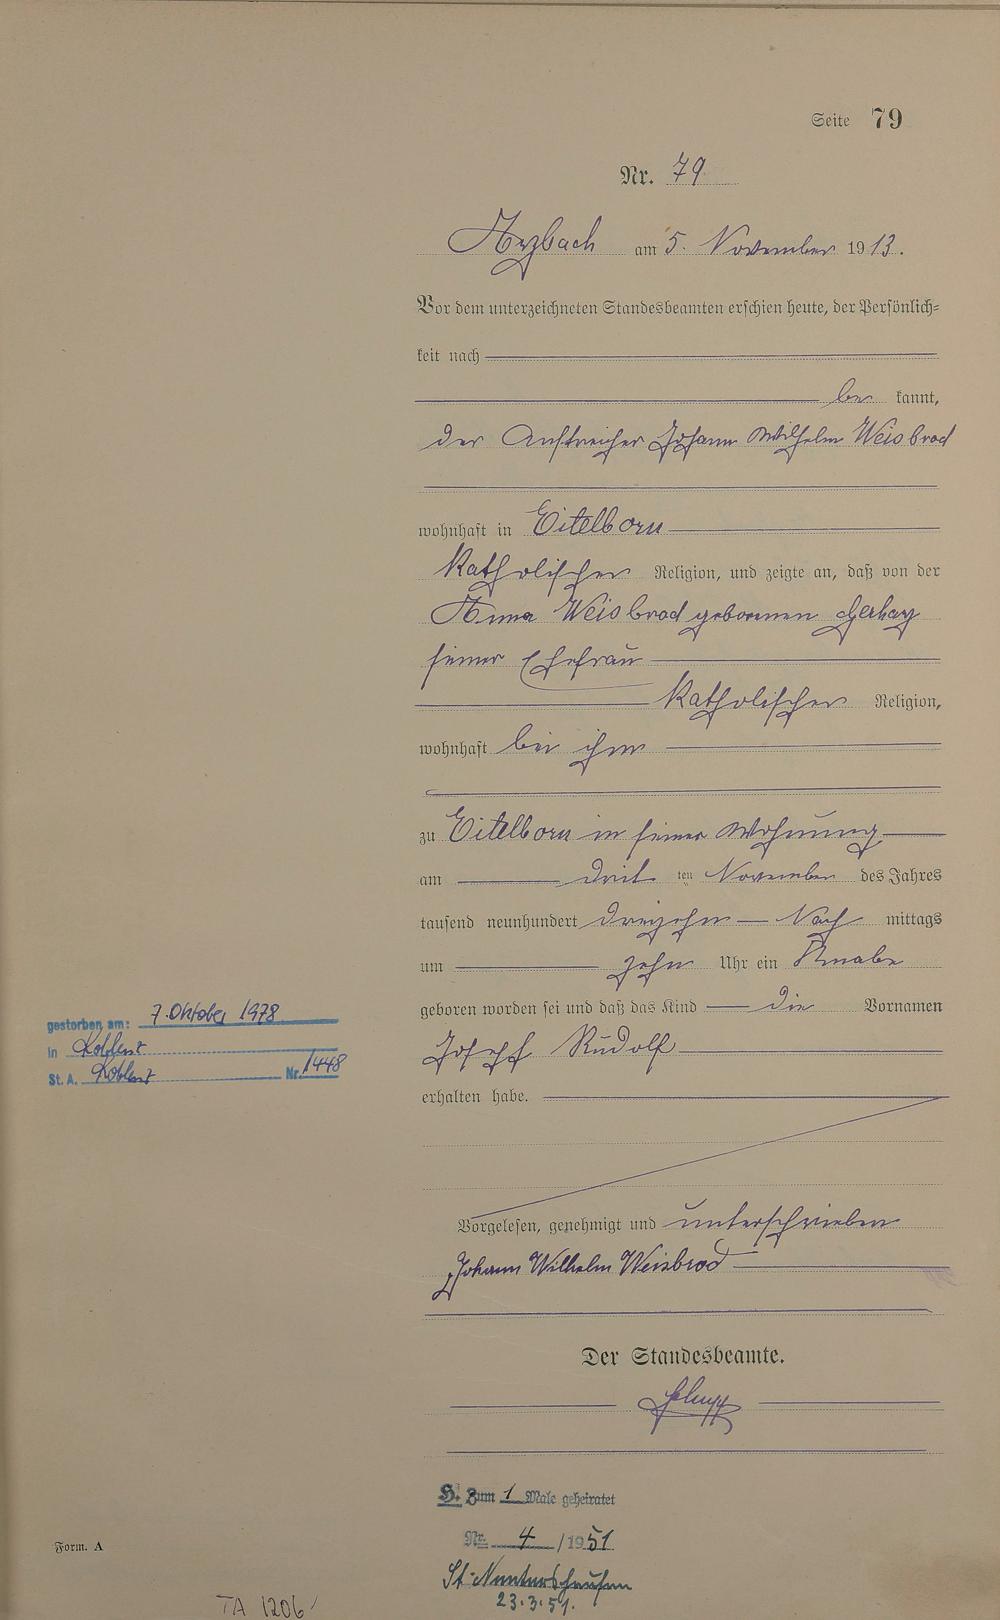 Seite 79
Nr. 79
Arzbach am 5. November 1913.
Vor dem unterzeichneten Standesbeamten erschien heute, der Persönlich=
keit nach
be kannt,
der Anstreicher Johann Wilhelm Weisbrod
wohnhaft in Eitelborn
katholischer Religion, und zeigte an, daß von der
Anna Weisbrod geborenen
seiner Ehefrau
katholischer Religion,
wohnhaft bei ihm
zu Eitelborn in seiner Wohnung
am drit ten November des Jahres
tausend neunhundert dreizehn Nach mittags
um zehn Uhr ein Knabe
geboren worden sei und daß das Kind die Vornamen
Josef Rudolf
erhalten habe.
gestorben am: 7. Oktober 1978
in Koblenz
St. A. Koblenz Nr. 1448
Vorgelesen, genehmigt und unterschrieben
Johann Wilhelm Weisbrod
Der Standesbeamte.
H. Zum 1 Male geheiratet
Nr. 4 / 1951
St. Nentershausen
23.3.51.
Form. A
TA 1206